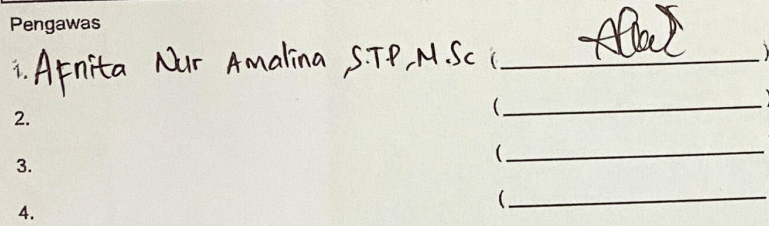 Pengawas
1. Afnita Nur Amalina, S.TP, M.Sc (__________)
2. (__________)
3. (__________
4. (__________